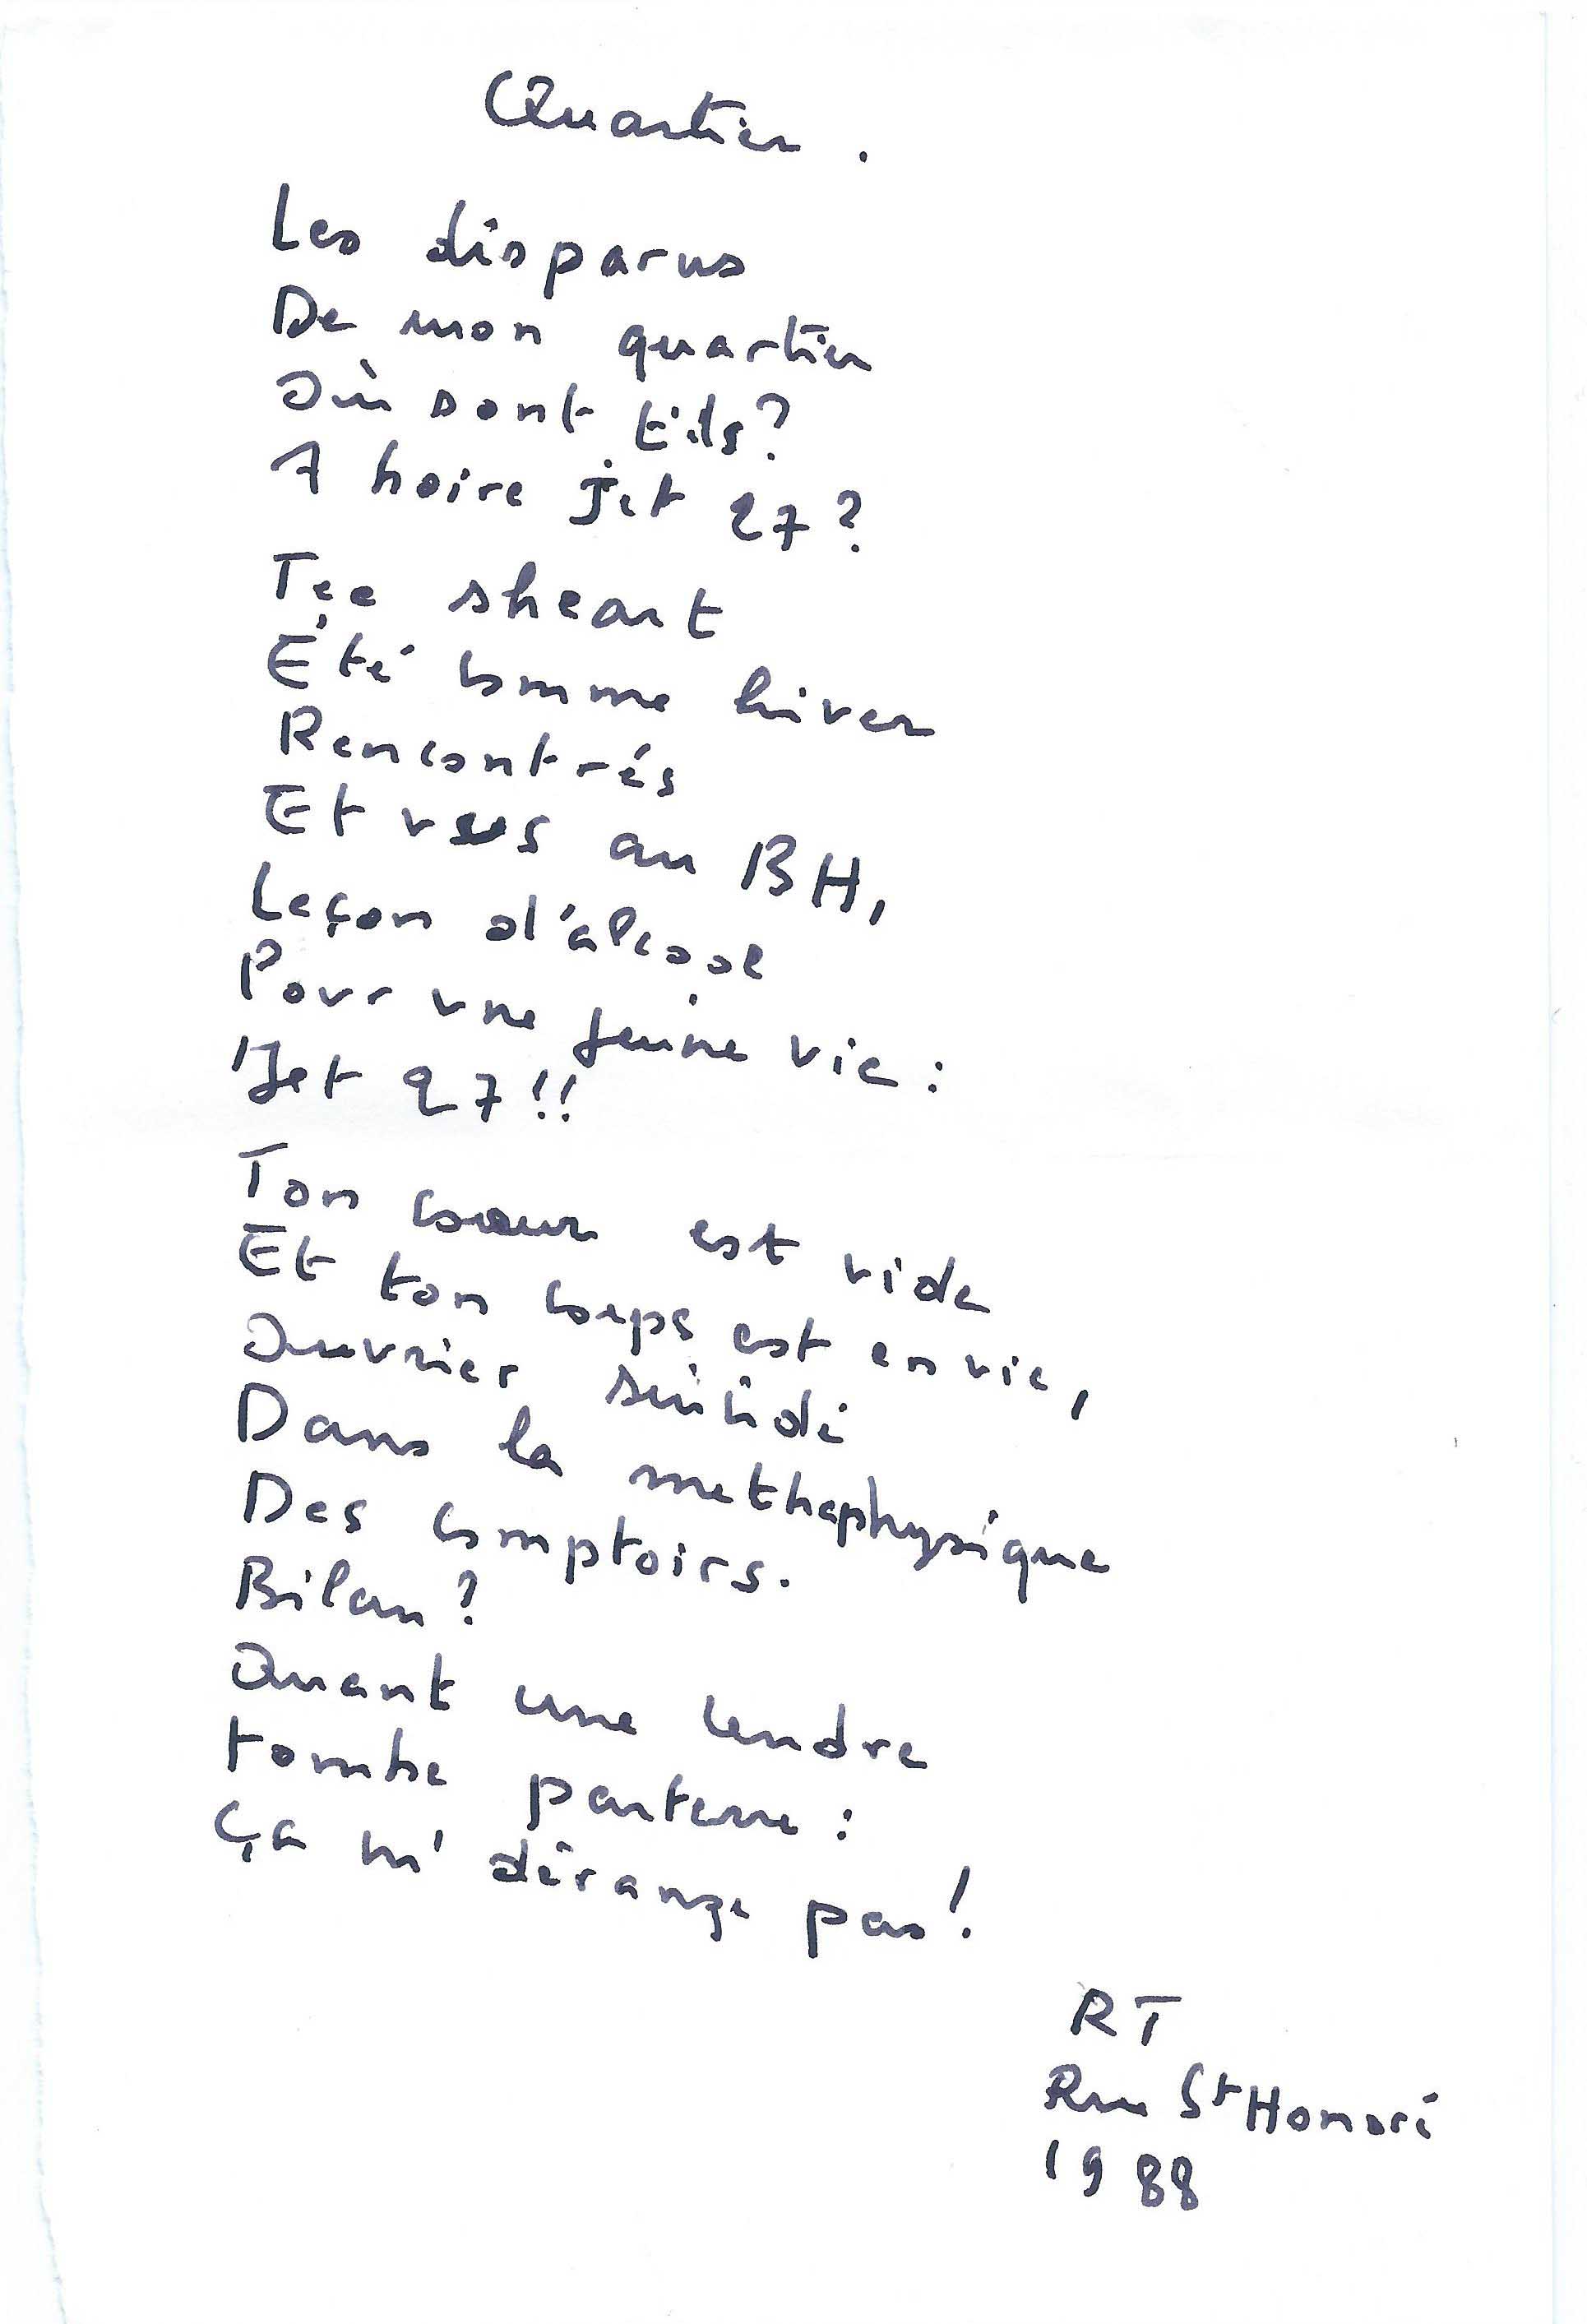 Quartier.
Les disparus
De mon quartier
Où sont t'ils?
A boire jet 27?
Tee sheart
Été comme hiver
Rencontrés
Et vus au BH,
Leçon d'alcool
Pour une jeune vie:
Jet 27!!
Ton coeur est vide
Et ton corps est en vie,
Ouvrier suicidé
Dans la methaphysique
Des comptoirs.
Bilan?
Quant une cendre
tombe parterre:
Ça m'dérange pas!
RT
Rue St Honoré
1988